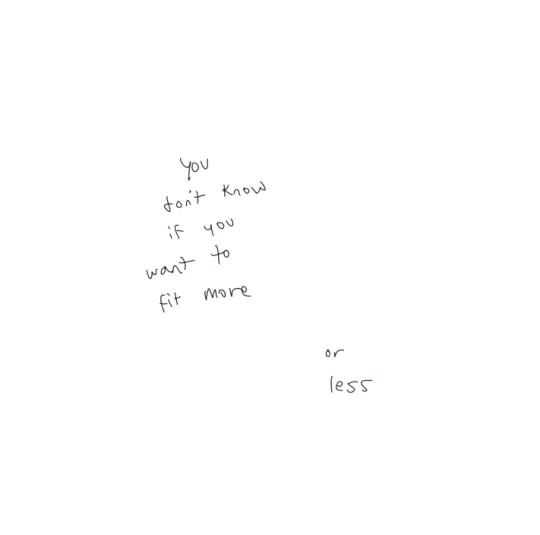 you
don't know
if you
want to
fit more
or
less